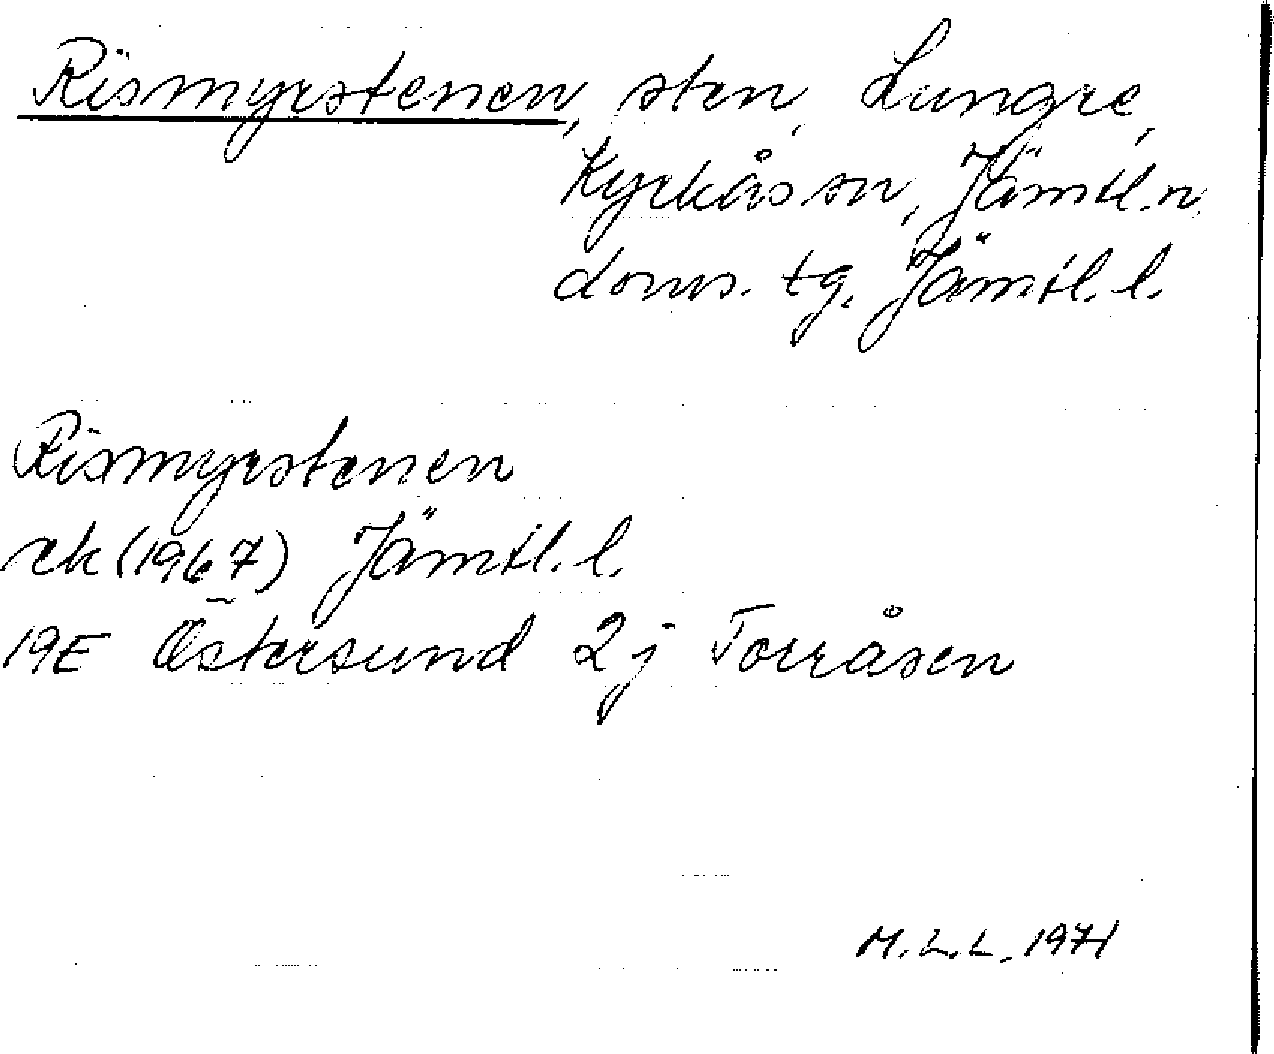 Rismyrstenen, sten, Lungre,
Kyrkås sn, Jämtl.n.
doms. tg. Jämtl. l.
Rismyrstenen
rk (1967) Jämtl. l.
19E Östersund 2j Torråsen
M.L.L. 1971